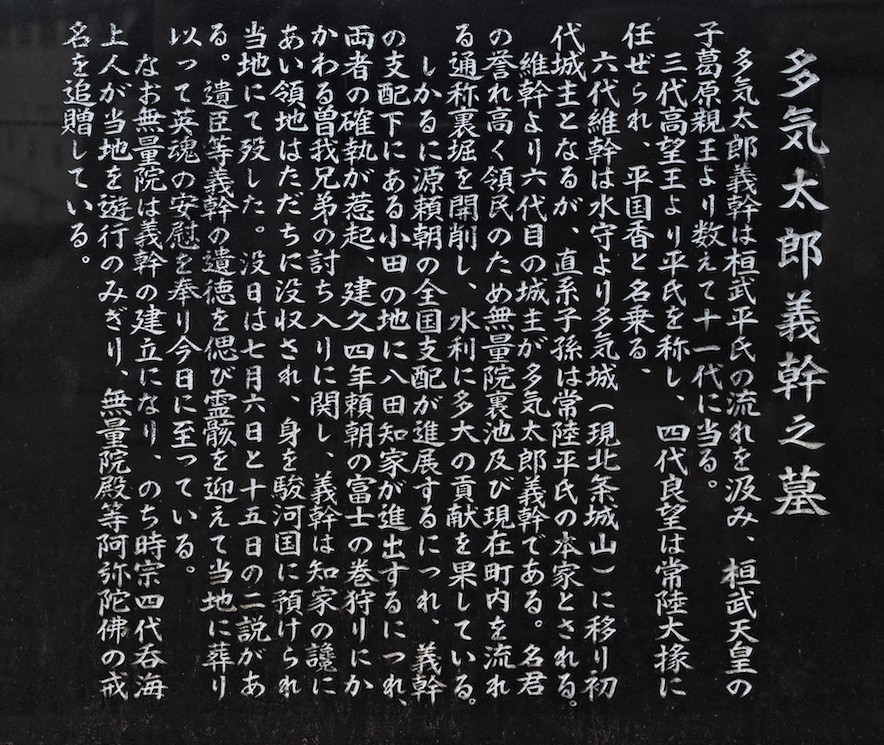 多気太郎義幹之墓
多気太郎義幹は桓武平氏の流れを汲み、桓武天皇の
子葛原親王より数えて十一代に当る。
三代高望王より平氏を称し、四代良望は常陸大掾に
任ぜられ、平国香と名乗る、
六代維幹は水守より多気城(現北条城山)に移り初
代城主となるが、直系子孫は常陸平氏の本家とされる。
維幹より六代目の城主が多気太郎義幹である。名君
の誉れ高く領民のため無量院裏池及び現在町内を流れ
る通称裏堀を開削し、水利に多大の貢献を果している。
しかるに源頼朝の全国支配が進展するにつれ、義幹
の支配下にある小田の地に八田知家が進出するにつれ、
両者の確執が惹起、建久四年頼朝の富士の巻狩りにか
かわる曽我兄弟の討ち入りに関し、義幹は知家の讒に
あい領地はただちに没収され、身を駿河国に預けられ
当地にて歿した。没日は七月六日と十五日の二説があ
る。遺臣等義幹の遺徳を偲び霊骸を迎えて当地に葬り
以って英魂の安慰を奉り今日に至っている。
なお無量院は義幹の建立になり、のち時宗四代呑海
上人が当地を遊行のみぎり、無量院殿等阿弥陀佛の戒
名を追贈している。